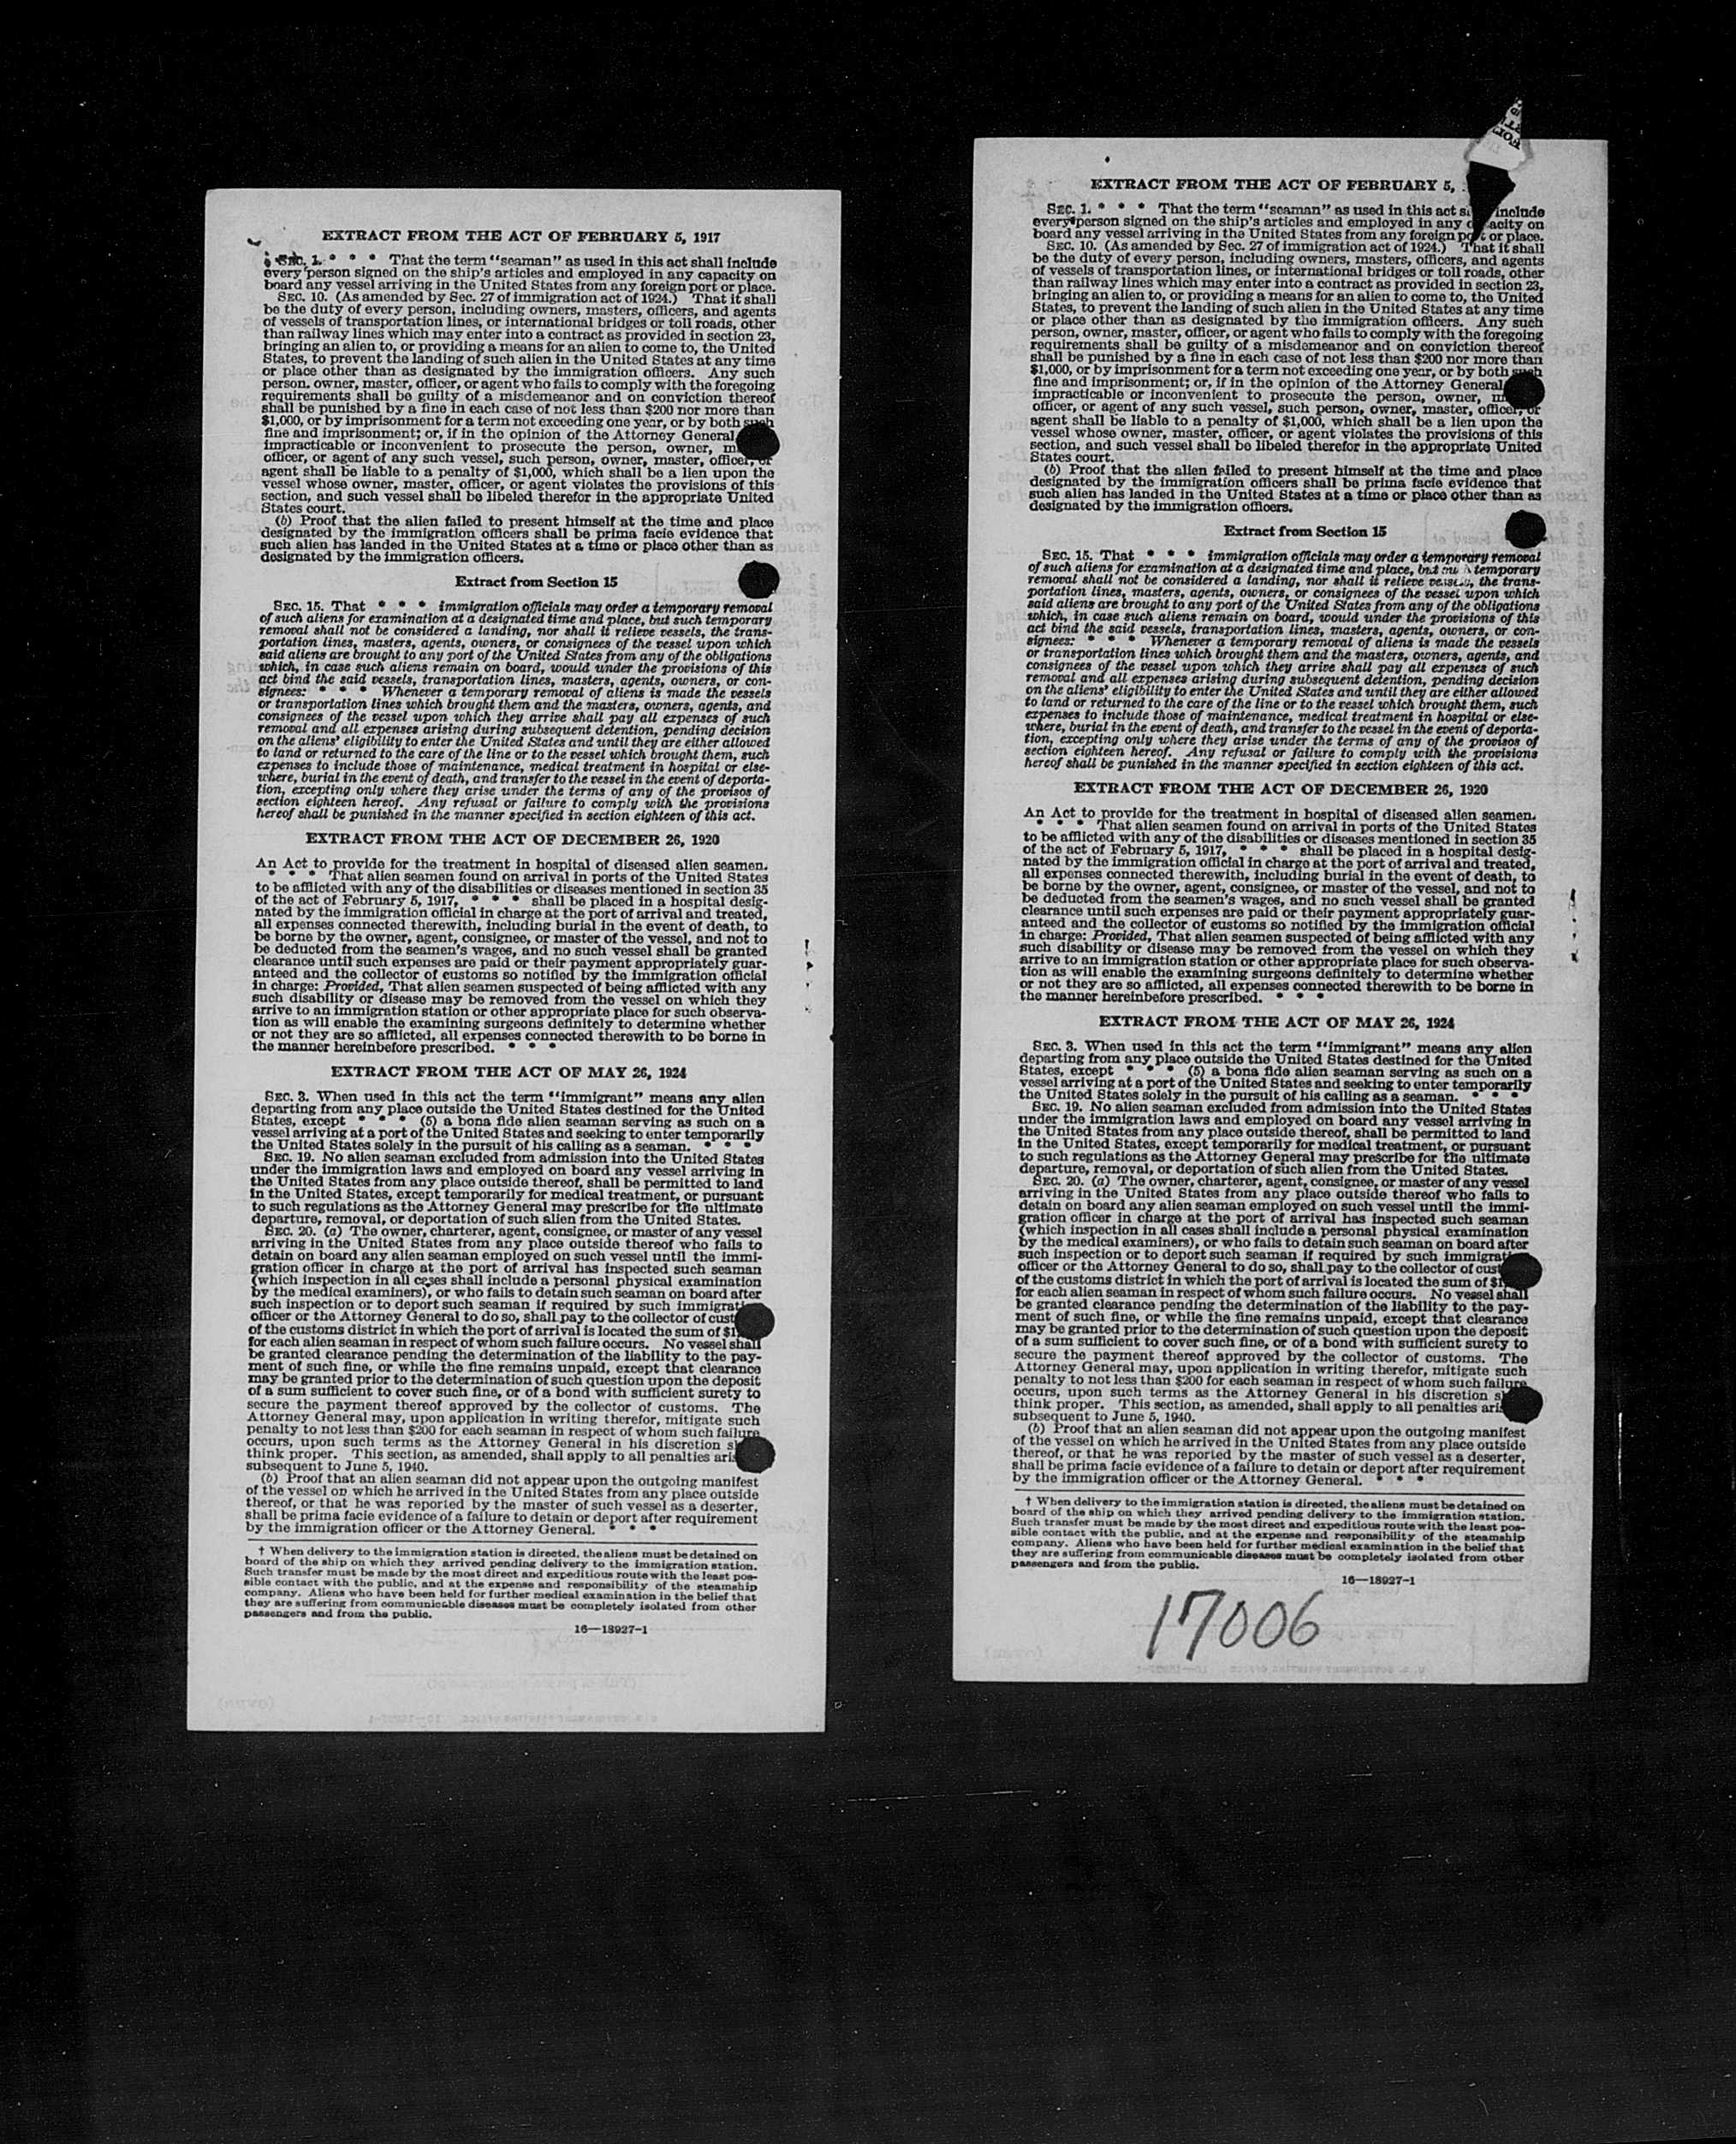 EXTRACT FROM THE ACT OF FEBRUARY 5, 1917
SEC. 1. * * * That the term "seaman" as used in this act shall include
every person signed on the ship's articles and employed in any capacity on
board any vessel arriving in the United States from any foreign port or place.
SEC. 10. (As amended by Sec. 27 of immigration act of 1924.) That it shall
be the duty of every person, including owners, masters, officers, and agents
of vessels of transportation lines, or international bridges or toll roads, other
than railway lines which may enter into a contract as provided in section 23,
bringing an alien to, or providing a means for an alien to come to, the United
States, to prevent the landing of such alien in the United States at any time
or place other than as designated by the immigration officers. Any such
person, owner, master, officer, or agent who fails to comply with the foregoing
requirements shall be guilty of a misdemeanor and on conviction thereof
shall be punished by a fine in each case of not less than $200 nor more than
$1,000, or by imprisonment for a term not exceeding one year, or by both such
fine and imprisonment; or, if in the opinion of the Attorney General
impracticable or inconvenient to prosecute the person, owner,
officer, or agent of any such vessel, such person, owner, master, officer, or
agent shall be liable to a penalty of $1,000, which shall be a lien upon the
vessel whose owner, master, officer, or agent violates the provisions of this
section, and such vessel shall be libeled therefor in the appropriate United
States court.
(b) Proof that the alien failed to present himself at the time and place
designated by the immigration officers shall be prima facie evidence that
such alien has landed in the United States at a time or place other than as
designated by the immigration officers.
Extract from Section 15
SEC. 15. That * * * immigration officials may order a temporary removal
of such aliens for examination at a designated time and place, but such temporary
removal shall not be considered a landing, nor shall it relieve vessels, the trans-
portation lines, masters, agents, owners, or consignees of the vessel upon which
said aliens are brought to any port of the United States from any of the obligations
which, in case such aliens remain on board, would under the provisions of this
act bind the said vessels, transportation lines, masters, agents, owners, or con-
signees: * * * Whenever a temporary removal of aliens is made the vessels
or transportation lines which brought them and the masters, owners, agents, and
consignees of the vessel upon which they arrive shall pay all expenses of such
removal and all expenses arising during subsequent detention, pending decision
on the aliens' eligibility to enter the United States and until they are either allowed
to land or returned to the care of the line or to the vessel which brought them, such
expenses to include those of maintenance, medical treatment in hospital or else-
where, burial in the event of death, and transfer to the vessel in the event of deporta-
tion, excepting only where they arise under the terms of any of the provisos of
section eighteen hereof. Any refusal or failure to comply with the provisions
hereof shall be punished in the manner specified in section eighteen of this act.
EXTRACT FROM THE ACT OF DECEMBER 26, 1920
An Act to provide for the treatment in hospital of diseased alien seamen.
* * * That alien seamen found on arrival in ports of the United States
to be afflicted with any of the disabilities or diseases mentioned in section 35
of the act of February 5, 1917, * * * shall be placed in a hospital desig-
nated by the immigration official in charge at the port of arrival and treated,
all expenses connected therewith, including burial in the event of death, to
be borne by the owner, agent, consignee, or master of the vessel, and not to
be deducted from the seamen's wages, and no such vessel shall be granted
clearance until such expenses are paid or their payment appropriately guar-
anteed and the collector of customs so notified by the immigration official
in charge: Provided, That alien seamen suspected of being afflicted with any
such disability or disease may be removed from the vessel on which they
arrive to an immigration station or other appropriate place for such observa-
tion as will enable the examining surgeons definitely to determine whether
or not they are so afflicted, all expenses connected therewith to be borne in
the manner hereinbefore prescribed. * * *
EXTRACT FROM THE ACT OF MAY 26, 1924
SEC. 3. When used in this act the term "immigrant" means any alien
departing from any place outside the United States destined for the United
States, except * * * (5) a bona fide alien seaman serving as such on a
vessel arriving at a port of the United States and seeking to enter temporarily
the United States solely in the pursuit of his calling as a seaman. * * *
SEC. 19. No alien seaman excluded from admission into the United States
under the immigration laws and employed on board any vessel arriving in
the United States from any place outside thereof, shall be permitted to land
in the United States, except temporarily for medical treatment, or pursuant
to such regulations as the Attorney General may prescribe for the ultimate
departure, removal, or deportation of such alien from the United States.
SEC. 20. (a) The owner, charterer, agent, consignee, or master of any vessel
arriving in the United States from any place outside thereof who fails to
detain on board any alien seaman employed on such vessel until the immi-
gration officer in charge at the port of arrival has inspected such seaman
(which inspection in all cases shall include a personal physical examination
by the medical examiners), or who fails to detain such seaman on board after
such inspection or to deport such seaman if required by such
officer or the Attorney General to do so, shall pay to the collector of
of the customs district in which the port of arrival is located the sum of
for each alien seaman in respect of whom such failure occurs. No vessel shall
be granted clearance pending the determination of the liability to the pay-
ment of such fine, or while the fine remains unpaid, except that clearance
may be granted prior to the determination of such question upon the deposit
of a sum sufficient to cover such fine, or of a bond with sufficient surety to
secure the payment thereof approved by the collector of customs. The
Attorney General may, upon application in writing therefor, mitigate such
penalty to not less than $200 for each seaman in respect of whom such failure
occurs, upon such terms as the Attorney General in his discretion
think proper. This section, as amended, shall apply to all penalties
subsequent to June 5, 1940.
(b) Proof that an alien seaman did not appear upon the outgoing manifest
of the vessel on which he arrived in the United States from any place outside
thereof, or that he was reported by the master of such vessel as a deserter,
shall be prima facie evidence of a failure to detain or deport after requirement
by the immigration officer or the Attorney General. * * *
† When delivery to the immigration station is directed, the aliens must be detained on
board of the ship on which they arrived pending delivery to the immigration station.
Such transfer must be made by the most direct and expeditious route with the least pos-
sible contact with the public, and at the expense and responsibility of the steamship
company. Aliens who have been held for further medical examination in the belief that
they are suffering from communicable diseases must be completely isolated from other
passengers and from the public.
16—18927-1
EXTRACT FROM THE ACT OF FEBRUARY 5,
SEC. 1. * * * That the term "seaman" as used in this act include
every person signed on the ship's articles and employed in any capacity on
board any vessel arriving in the United States from any foreign port or place.
SEC. 10. (As amended by Sec. 27 of immigration act of 1924.) That it shall
be the duty of every person, including owners, masters, officers, and agents
of vessels of transportation lines, or international bridges or toll roads, other
than railway lines which may enter into a contract as provided in section 23,
bringing an alien to, or providing a means for an alien to come to, the United
States, to prevent the landing of such alien in the United States at any time
or place other than as designated by the immigration officers. Any such
person, owner, master, officer, or agent who fails to comply with the foregoing
requirements shall be guilty of a misdemeanor and on conviction thereof
shall be punished by a fine in each case of not less than $200 nor more than
$1,000, or by imprisonment for a term not exceeding one year, or by both such
fine and imprisonment; or, if in the opinion of the Attorney General
impracticable or inconvenient to prosecute the person, owner,
officer, or agent of any such vessel, such person, owner, master, officer, or
agent shall be liable to a penalty of $1,000, which shall be a lien upon the
vessel whose owner, master, officer, or agent violates the provisions of this
section, and such vessel shall be libeled therefor in the appropriate United
States court.
(b) Proof that the alien failed to present himself at the time and place
designated by the immigration officers shall be prima facie evidence that
such alien has landed in the United States at a time or place other than as
designated by the immigration officers.
Extract from Section 15
SEC. 15. That * * * immigration officials may order a temporary removal
of such aliens for examination at a designated time and place, but temporary
removal shall not be considered a landing, nor shall it relieve vessels, the trans-
portation lines, masters, agents, owners, or consignees of the vessel upon which
said aliens are brought to any port of the United States from any of the obligations
which, in case such aliens remain on board, would under the provisions of this
act bind the said vessels, transportation lines, masters, agents, owners, or con-
signees: * * * Whenever a temporary removal of aliens is made the vessels
or transportation lines which brought them and the masters, owners, agents, and
consignees of the vessel upon which they arrive shall pay all expenses of such
removal and all expenses arising during subsequent detention, pending decision
on the aliens' eligibility to enter the United States and until they are either allowed
to land or returned to the care of the line or to the vessel which brought them, such
expenses to include those of maintenance, medical treatment in hospital or else-
where, burial in the event of death, and transfer to the vessel in the event of deporta-
tion, excepting only where they arise under the terms of any of the provisos of
section eighteen hereof. Any refusal or failure to comply with the provisions
hereof shall be punished in the manner specified in section eighteen of this act.
EXTRACT FROM THE ACT OF DECEMBER 26, 1920
An Act to provide for the treatment in hospital of diseased alien seamen.
* * * That alien seamen found on arrival in ports of the United States
to be afflicted with any of the disabilities or diseases mentioned in section 35
of the act of February 5, 1917, * * * shall be placed in a hospital desig-
nated by the immigration official in charge at the port of arrival and treated,
all expenses connected therewith, including burial in the event of death, to
be borne by the owner, agent, consignee, or master of the vessel, and not to
be deducted from the seamen's wages, and no such vessel shall be granted
clearance until such expenses are paid or their payment appropriately guar-
anteed and the collector of customs so notified by the immigration official
in charge: Provided, That alien seamen suspected of being afflicted with any
such disability or disease may be removed from the vessel on which they
arrive to an immigration station or other appropriate place for such observa-
tion as will enable the examining surgeons definitely to determine whether
or not they are so afflicted, all expenses connected therewith to be borne in
the manner hereinbefore prescribed. * * *
EXTRACT FROM THE ACT OF MAY 26, 1924
SEC. 3. When used in this act the term "immigrant" means any alien
departing from any place outside the United States destined for the United
States, except * * * (5) a bona fide alien seaman serving as such on a
vessel arriving at a port of the United States and seeking to enter temporarily
the United States solely in the pursuit of his calling as a seaman. * * *
SEC. 19. No alien seaman excluded from admission into the United States
under the immigration laws and employed on board any vessel arriving in
the United States from any place outside thereof, shall be permitted to land
in the United States, except temporarily for medical treatment, or pursuant
to such regulations as the Attorney General may prescribe for the ultimate
departure, removal, or deportation of such alien from the United States.
SEC. 20. (a) The owner, charterer, agent, consignee, or master of any vessel
arriving in the United States from any place outside thereof who fails to
detain on board any alien seaman employed on such vessel until the immi-
gration officer in charge at the port of arrival has inspected such seaman
(which inspection in all cases shall include a personal physical examination
by the medical examiners), or who fails to detain such seaman on board after
such inspection or to deport such seaman if required by such
officer or the Attorney General to do so, shall pay to the collector of
of the customs district in which the port of arrival is located the sum of
for each alien seaman in respect of whom such failure occurs. No vessel shall
be granted clearance pending the determination of the liability to the pay-
ment of such fine, or while the fine remains unpaid, except that clearance
may be granted prior to the determination of such question upon the deposit
of a sum sufficient to cover such fine, or of a bond with sufficient surety to
secure the payment thereof approved by the collector of customs. The
Attorney General may, upon application in writing therefor, mitigate such
penalty to not less than $200 for each seaman in respect of whom such failure
occurs, upon such terms as the Attorney General in his discretion
think proper. This section, as amended, shall apply to all penalties
subsequent to June 5, 1940.
(b) Proof that an alien seaman did not appear upon the outgoing manifest
of the vessel on which he arrived in the United States from any place outside
thereof, or that he was reported by the master of such vessel as a deserter,
shall be prima facie evidence of a failure to detain or deport after requirement
by the immigration officer or the Attorney General. * * *
† When delivery to the immigration station is directed, the aliens must be detained on
board of the ship on which they arrived pending delivery to the immigration station.
Such transfer must be made by the most direct and expeditious route with the least pos-
sible contact with the public, and at the expense and responsibility of the steamship
company. Aliens who have been held for further medical examination in the belief that
they are suffering from communicable diseases must be completely isolated from other
passengers and from the public.
16—18927-1
17006